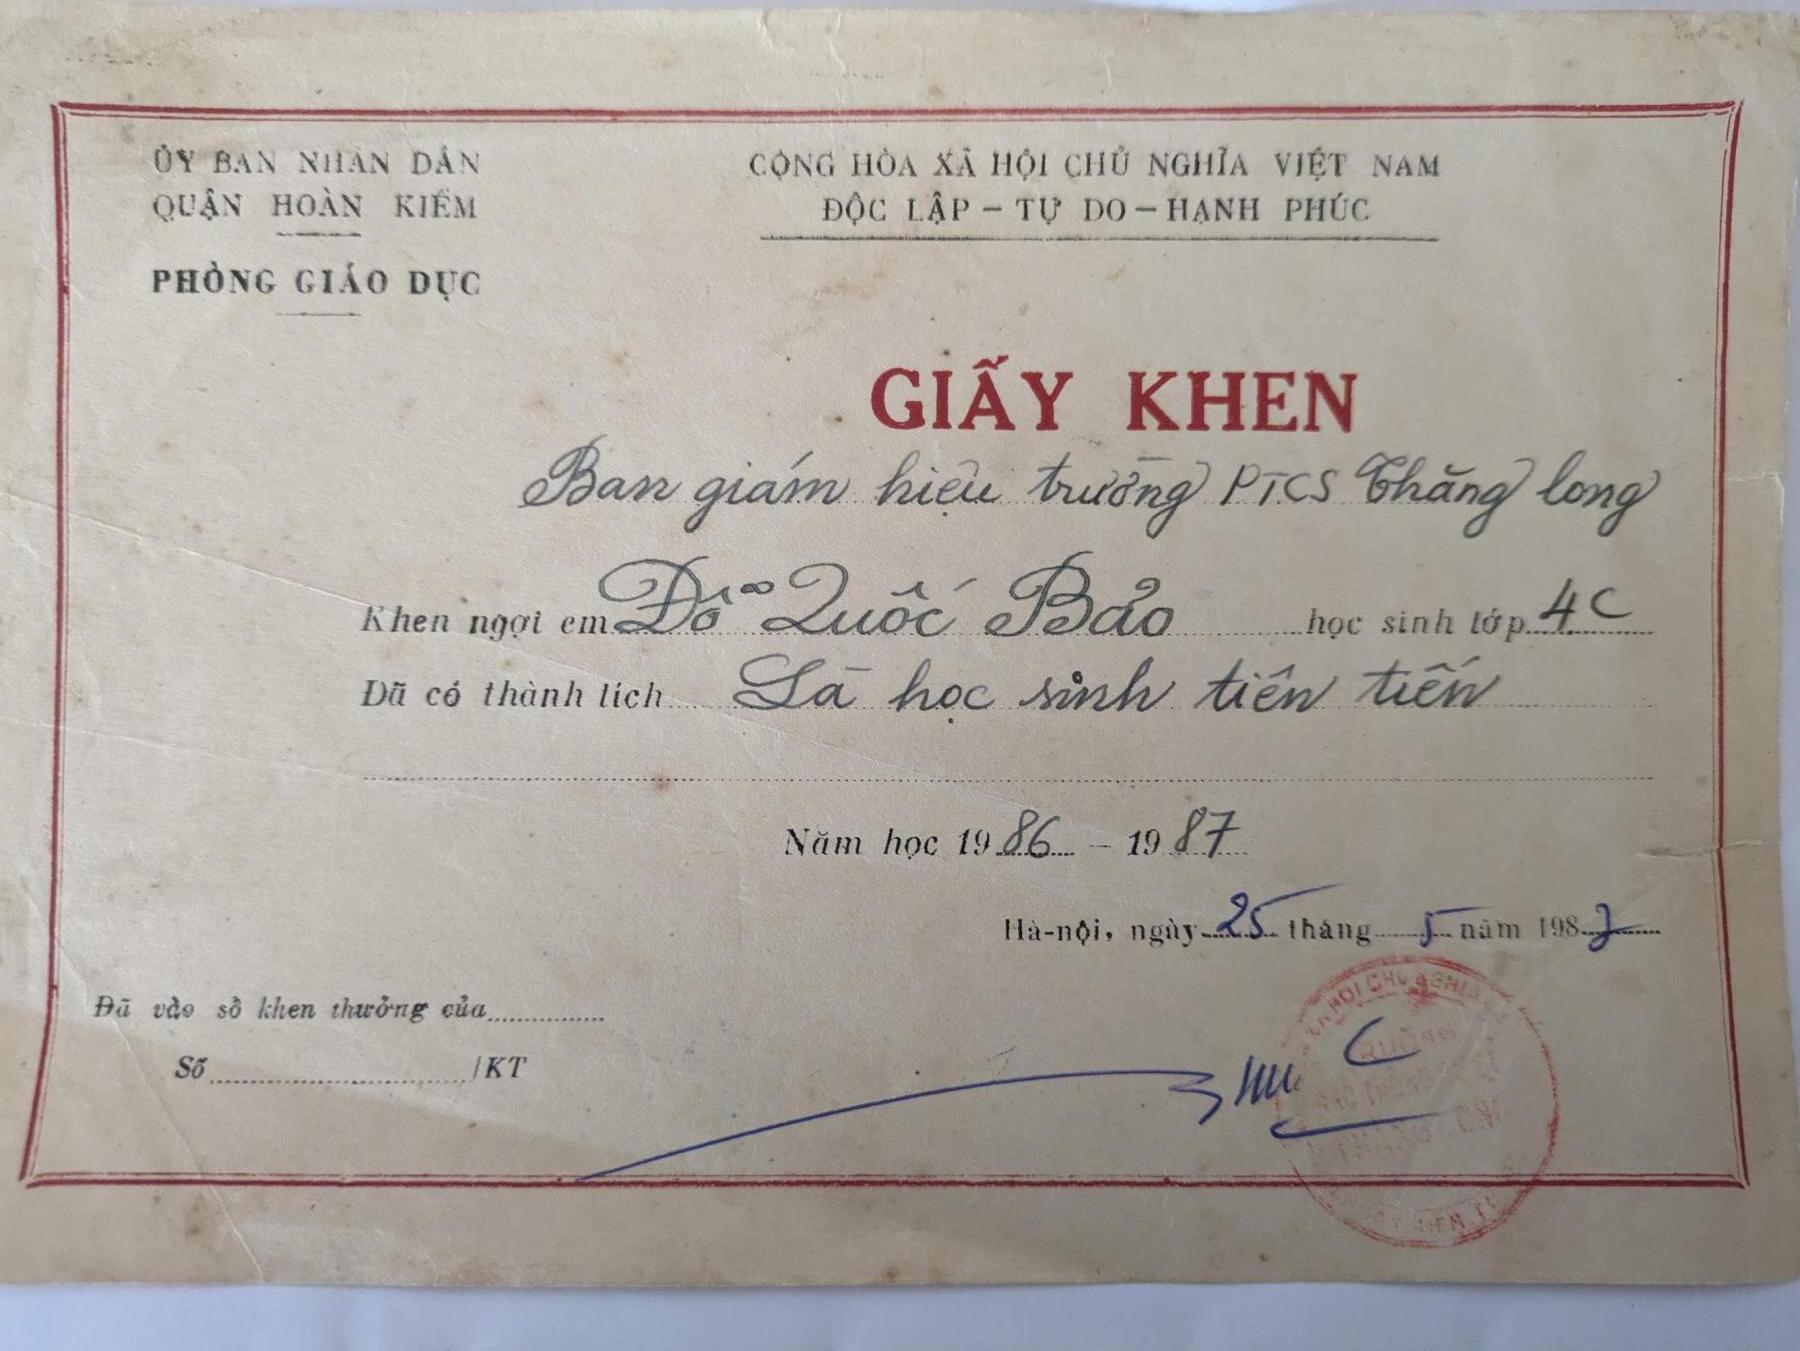 ỦY BAN NHÂN DÂN
QUẬN HOÀN KIẾM
PHÒNG GIÁO DỤC
CỘNG HÒA XÃ HỘI CHỦ NGHĨA VIỆT NAM
ĐỘC LẬP – TỰ DO – HẠNH PHÚC
GIẤY KHEN
Ban giám hiệu trường PTCS Thăng long
Khen ngợi em Đỗ Quốc Bảo học sinh lớp 4C
Đã có thành tích Là học sinh tiên tiến
Năm học 1986 – 1987
Hà-nội, ngày 25 tháng 5 năm 1987
Đã vào sổ khen thưởng của
Số /KT
HỘI CHỦ NGHĨA
TRƯỜNG